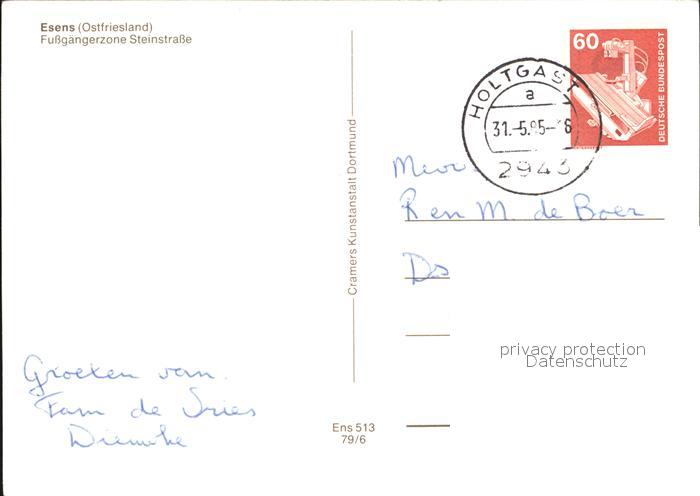 Esens (Ostfriesland)
Fußgängerzone Steinstraße
60
DEUTSCHE BUNDESPOST
HOLTGAST
a
31.-5.
2943
Cramers Kunstanstalt Dortmund
Ren M. de Boer
Ds
privacy protection
Datenschutz
Groeten van
Fam de Vries
Ens 513
79/6